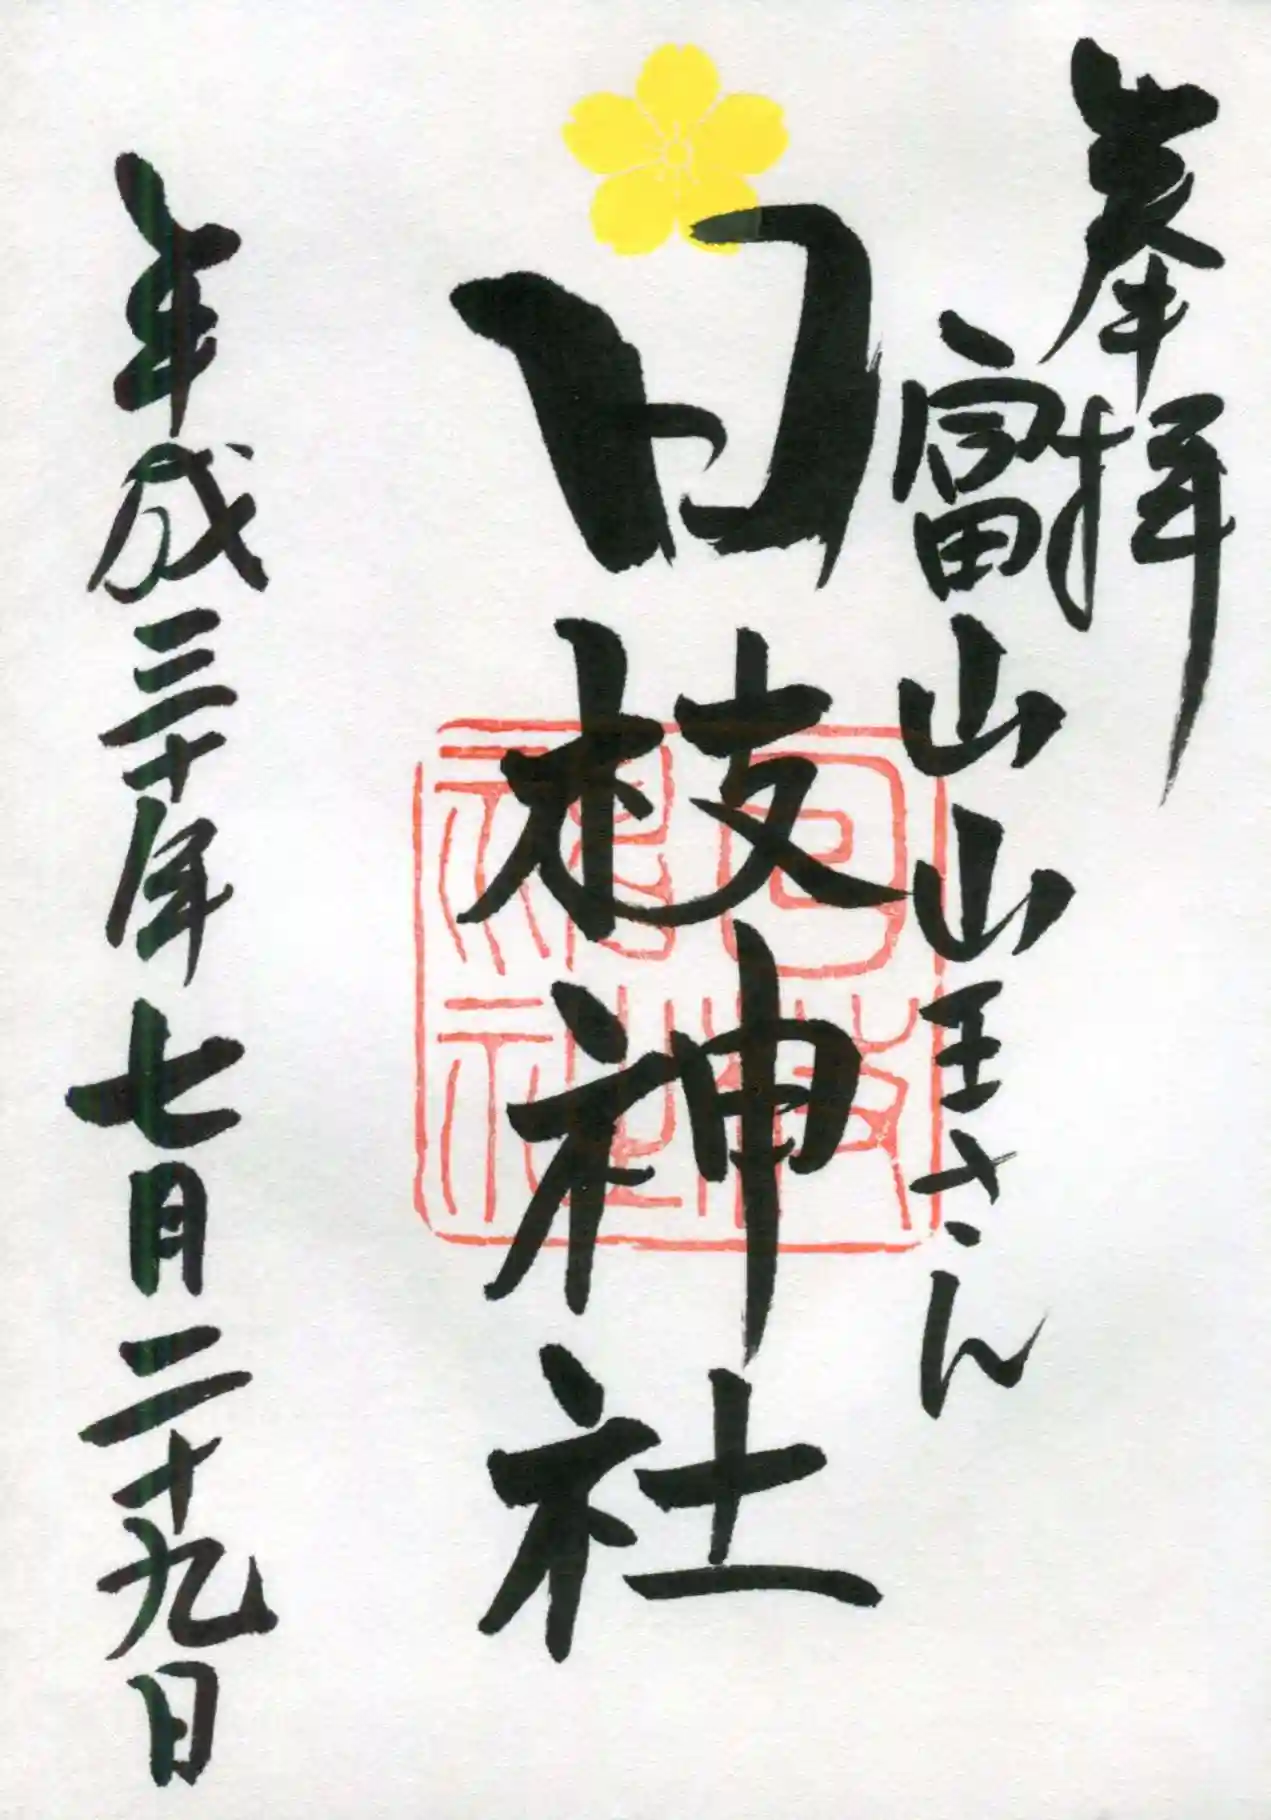 奉拝
富山山王さん
日枝神社
日枝
神社
平成三十年七月二十九日